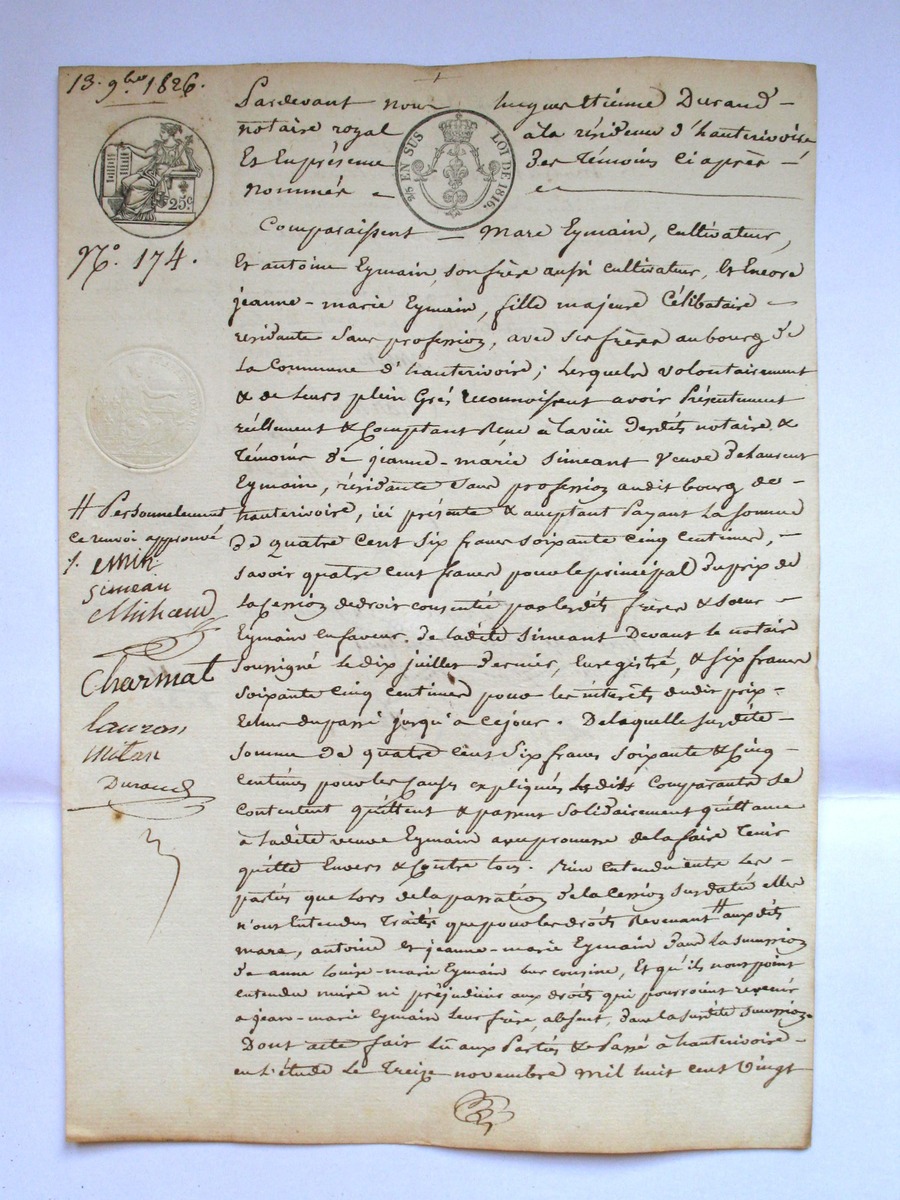 13. 9bre 1826.
25c
2/5 EN SUS LOI DE 1816.
N.° 174.
Pardevant nous hugues Etienne Durand
notaire royal à la résidence d'hauterivoire
Et En présence des témoins ci après
nommés
Comparaissent Marc Eymain, cultivateur,
Et antoine Eymain, son frère aussi cultivateur, Et Encore
jeanne-marie Eymain, fille majeure Célibataire
résidante sans profession, avec ses frères au bourg de
la Commune d'hauterivoire; lesquels volontairement
& de leurs plein Grés reconnoissent avoir Présentement
réellement & Comptant Recu à la vüe desdits notaire &
témoins de jeanne-marie Simeant veuve de
Eymain, résidante sans profession audit bourg de
hauterivoire, ici présente & acceptant Payant la somme
de quatre cent six francs soixante cinq centimes,
savoir quatre cent francs pour le principal du prix de
la Cession de droit consentie par lesdits frères & soeur
Eymain en faveur de ladite Simeant Devant le notaire
soussigné le dix juillet dernier, Enregistré, & six francs
soixante cinq centimes pour les intérêts dudit prix
Echus du passé jusqu'à ce jour. De laquelle susdite
somme de quatre cens six francs soixante & cinq
centimes pour les causes expliquées lesdits Comparants se
contentent quittent & passent solidairement quittance
à ladite veuve Eymain avec promesse de la faire tenir
quitte Envers & Contre tous. Bien Entendu entre les
parties que lors de la passation de la Cession susdatée elles
n'ont Entendus Traités que pour les droits Revenant # auxdits
marc, antoine et jeanne-marie Eymain dans la succession
de anne Louise-marie Eymain leur cousine, Et qu'ils n'ont point
entendu nuire ni préjudicier aux droits qui pourroient revenir
a jean-marie Eymain leur frère, absent, dans la susdite succession.
Dont acte fait lu aux Parties & Passé à hauterivoire
en L'étude le Treize novembre mil huit cent vingt
# Personnelement
ce renvoi approuvé
simean
Charmat
Durand